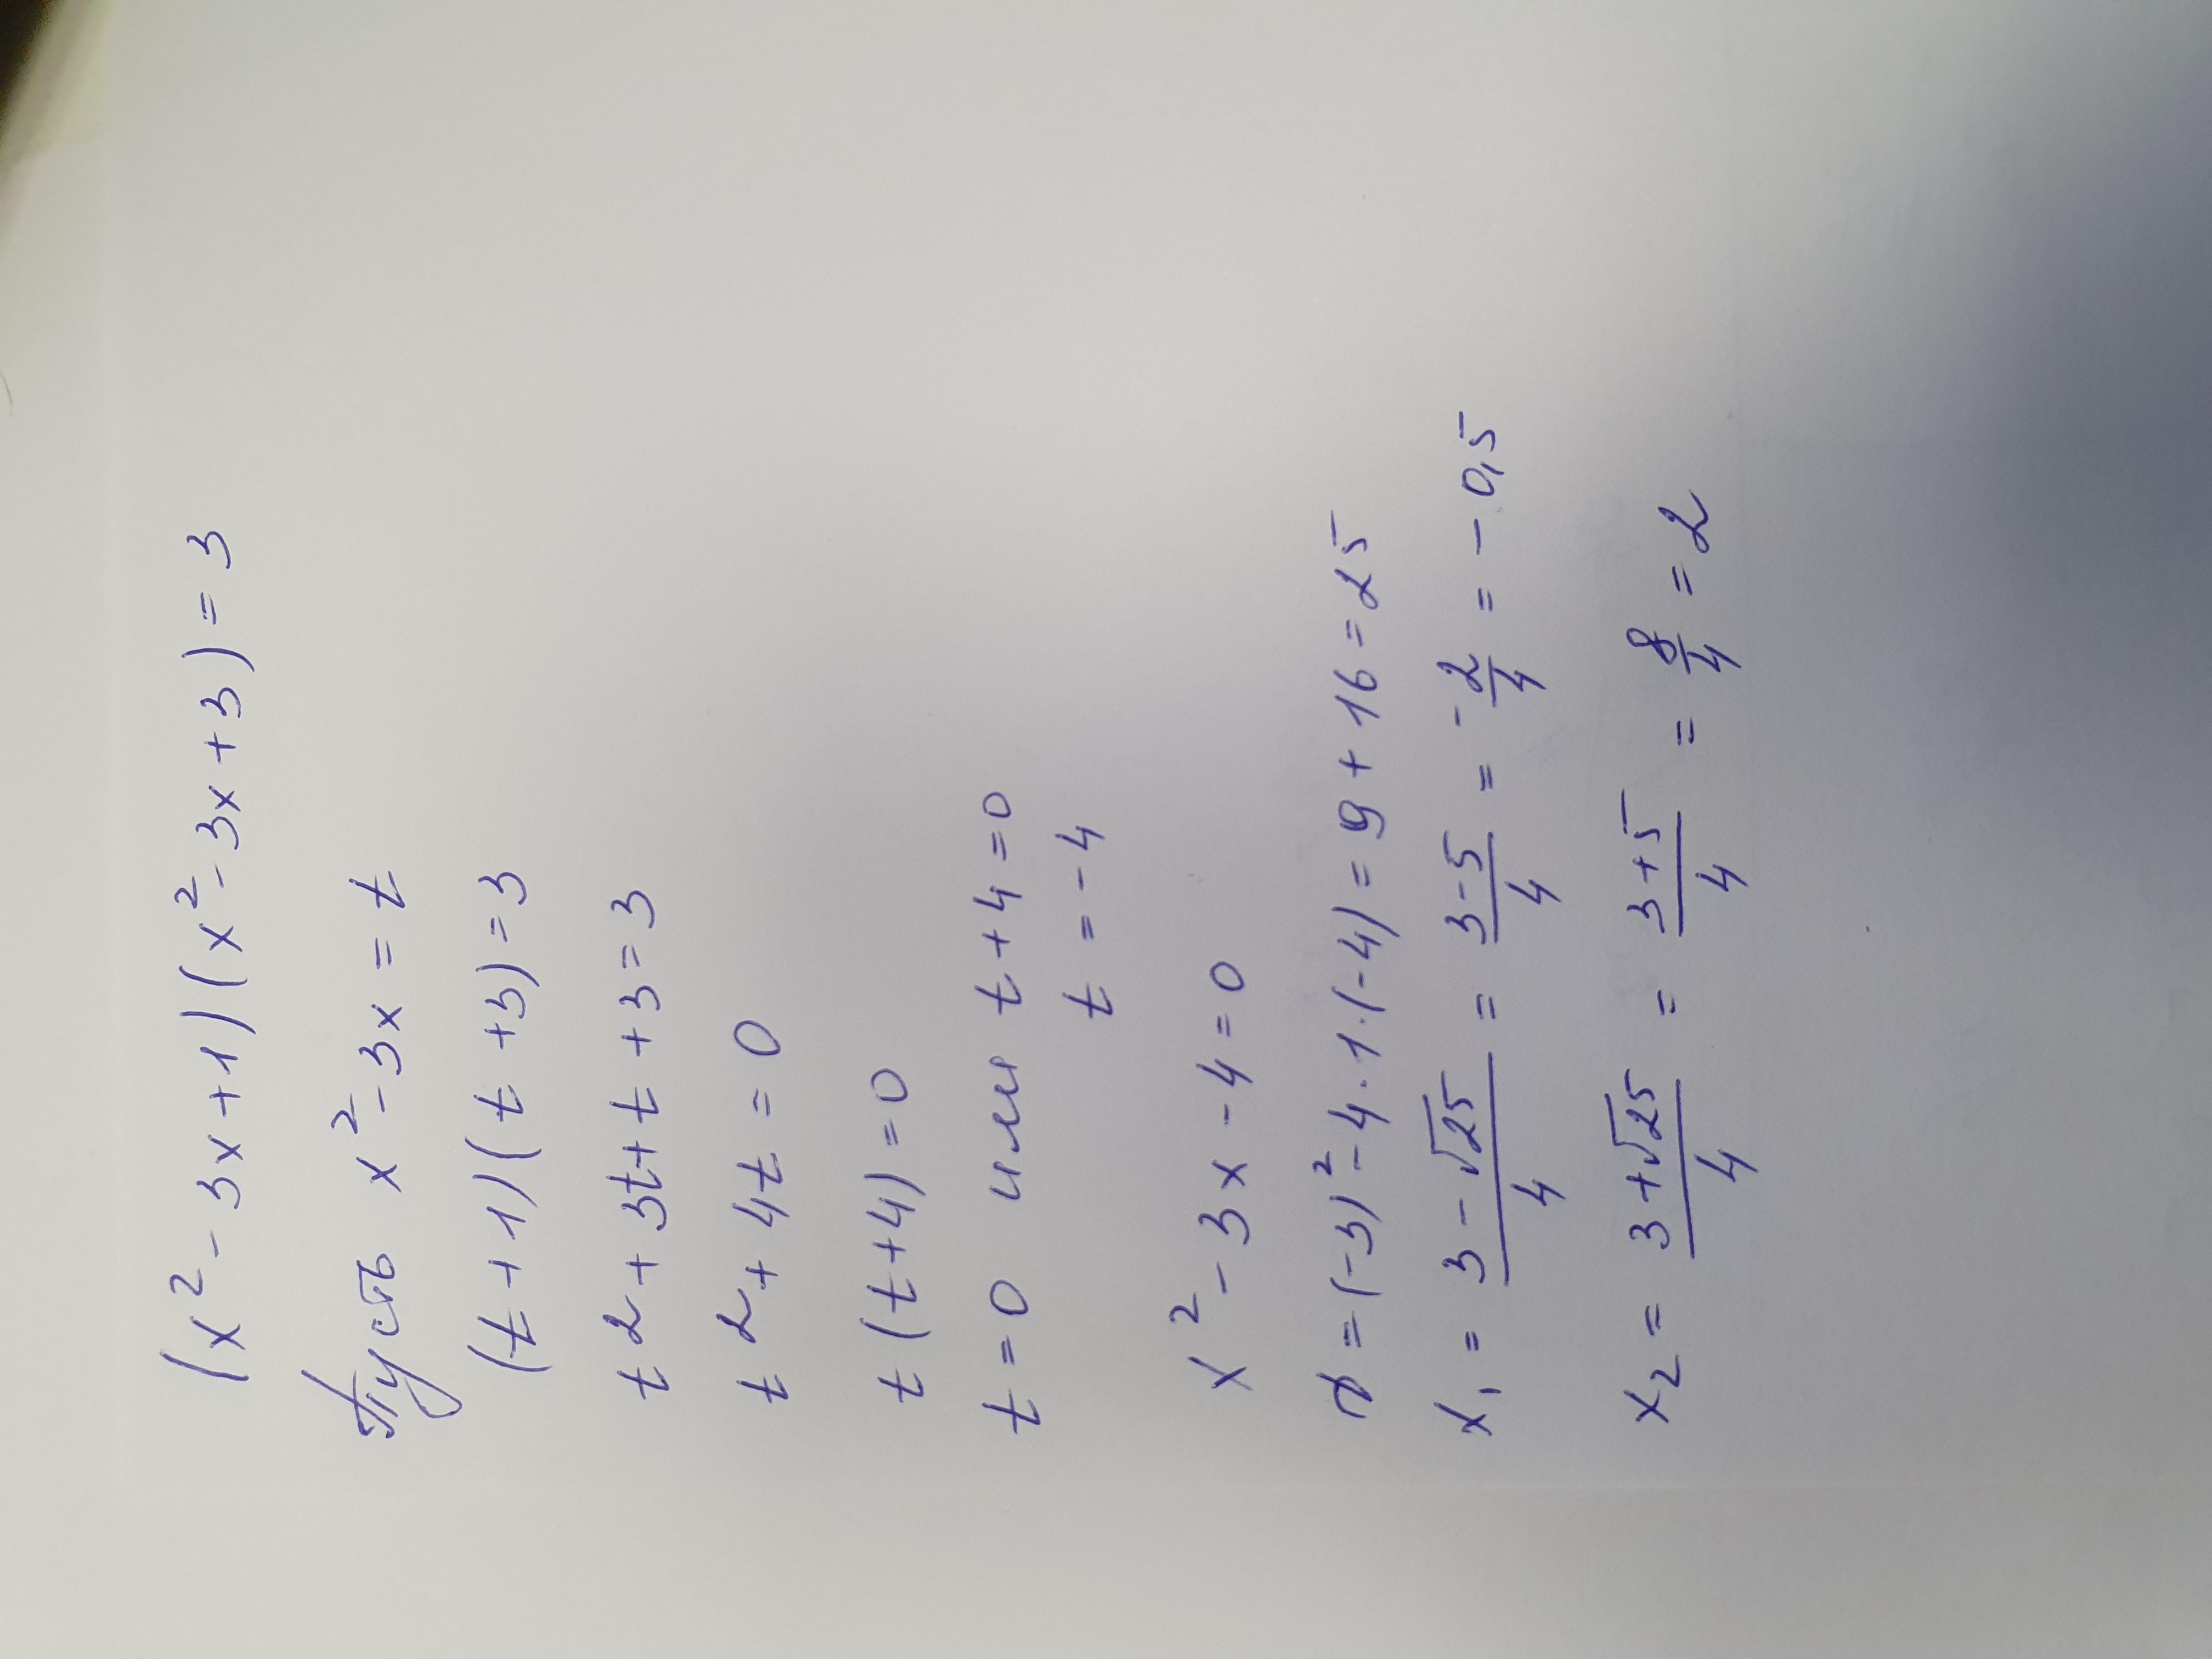 (x² - 3x + 1)(x² - 3x + 3) = 3
Пусть x² - 3x = t
(t + 1)(t + 3) = 3
t2 + 3t + t + 3 = 3
t2 + 4t = 0
t(t + 4) = 0
t = 0 или t + 4 = 0
t = -4
x² - 3x - 4 = 0
D = (-3)² - 4·1·(-4) = 9 + 16 = 25
x₁ = (3 - √25)/4 = (3 - 5)/4 = -2/4 = -0,5
x₂ = (3 + √25)/4 = (3 + 5)/4 = 8/4 = 2